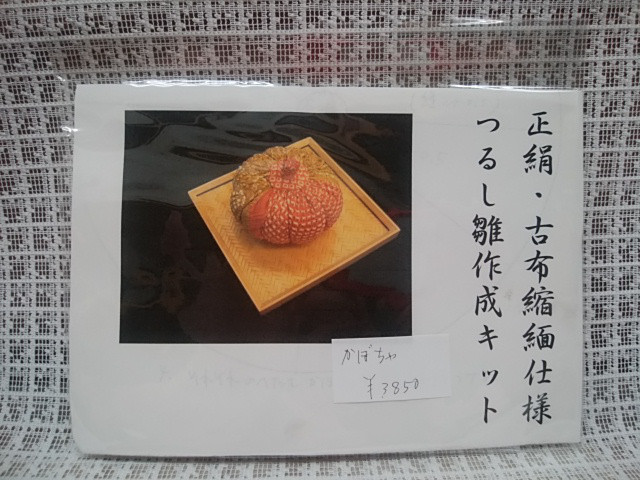 正絹・古布縮緬仕様
つるし雛作成キット
かぼちゃ
¥3850